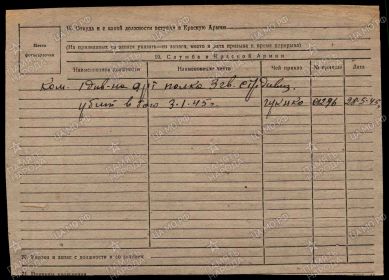 18. Откуда и с какой должности вступил в Красную Армию
Место фотокарточки
(На призванных из запаса указать — из запаса, место и дата призыва и время перерыва)
19. Служба в Красной Армии
Наименование должности
Наименование части
Чей приказ
№ приказа
Дата
Ком. 1 див-на арт полка 3 гв. стр. дивиз.
убит в бою 3.1.45г. ГУК НКО 01296 28.5.45
20. Уволен в запас с должности и по какой